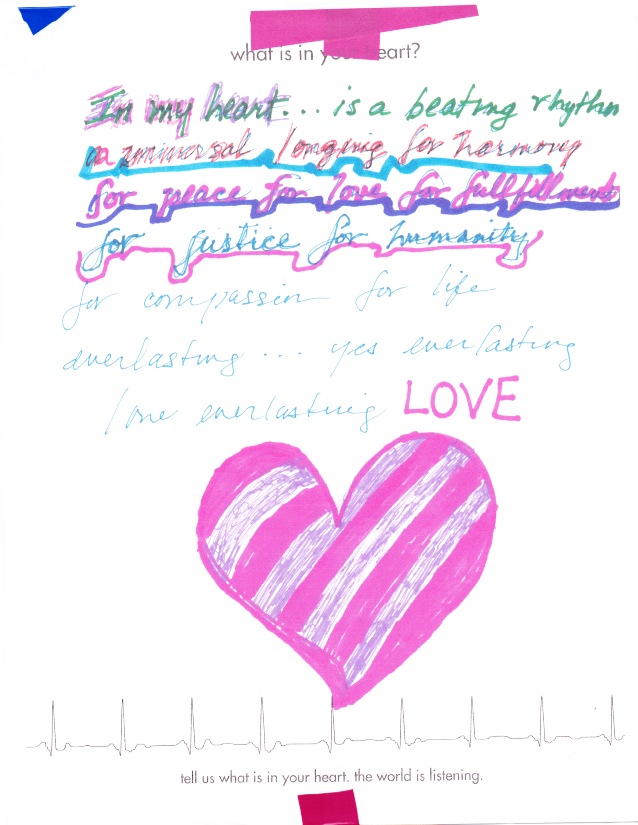 what is in your heart?
In my heart... is a beating rhythm
a universal longing for harmony
for peace for love for fullfillment
for justice for humanity
for compassion for life
everlasting ... yes everlasting
love everlasting LOVE
tell us what is in your heart. the world is listening.